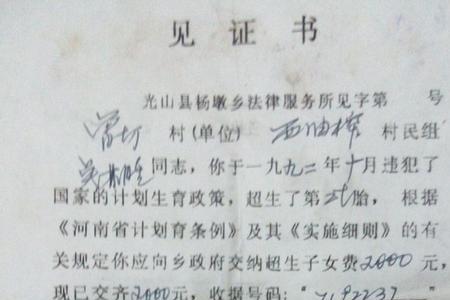 见 证 书
光山县杨墩乡法律服务所见字第 号
村(单位) 西油榨 村民组
同志，你于一九九二年十月违犯了
国家的计划生育政策，超生了第 胎，根据
《河南省计划育条例》及其《实施细则》的有
关规定你应向乡政府交纳超生子女费2000元，
现已交齐2000元，收据号码：